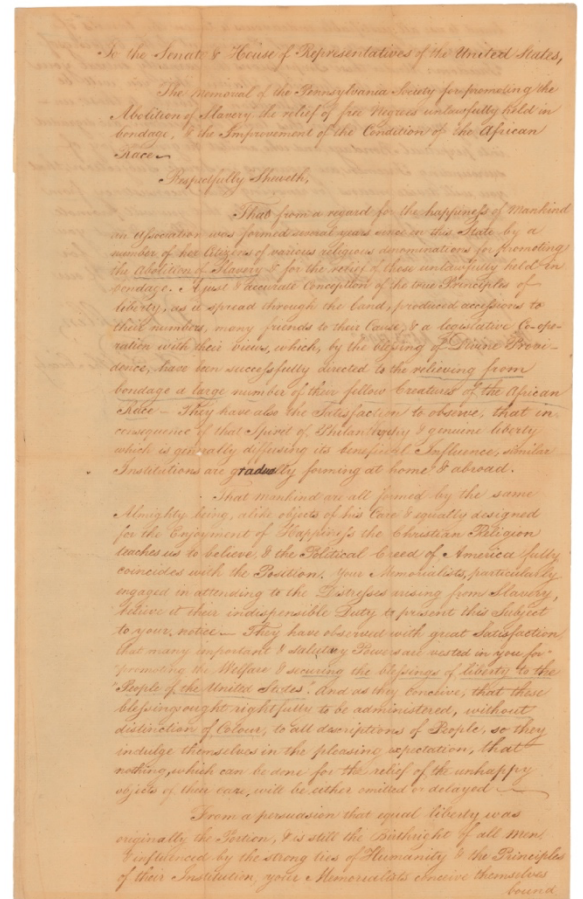 To the Senate & House of Representatives of the United States,
The Memorial of the Pennsylvania Society for promoting the
Abolition of Slavery, the relief of free Negroes unlawfully held in
bondage, & the Improvement of the Condition of the African
Race—
Respectfully Sheweth,
That from a regard for the happiness of Mankind
an Association was formed several years since in this State by a
number of her Citizens of various religious denominations for promoting
the Abolition of Slavery & for the relief of those unlawfully held in
bondage. A just & accurate Conception of the true Principles of
liberty, as it spread through the land, produced accessions to
their numbers, many friends to their Cause, & a legislative Co-ope-
ration with their views, which, by the blessing of Divine Provi-
dence, have been successfully directed to the relieving from
bondage a large number of their fellow Creatures of the African
Race— They have also the Satisfaction to observe, that in
consequence of that Spirit of Philanthropy & genuine liberty
which is generally diffusing its beneficial Influence, similar
Institutions are gradually forming at home & abroad.
That mankind are all formed by the same
Almighty being, alike objects of his Care & equally designed
for the Enjoyment of Happiness the Christian Religion
teaches us to believe & the Political Creed of America fully
coincides with the Position. Your Memorialists, particularly
engaged in attending to the Distresses arising from Slavery,
believe it their indispensible Duty to present this Subject
to your notice— They have observed with great Satisfaction
that many important & salutary Powers are vested in you for
"promoting the Welfare & securing the blessings of liberty to the
"People of the United States." And as they conceive, that these
blessings ought rightfully to be administered, without
distinction of Colour, to all descriptions of People, so they
indulge themselves in the pleasing expectation, that
nothing, which can be done for the relief of the unhappy
objects of their care, will be either omitted or delayed—
From a persuasion that equal liberty was
originally the Portion, & is still the Birthright of all Men
& influenced by the strong ties of Humanity & the Principles
of their Institution, your Memorialists conceive themselves
bound